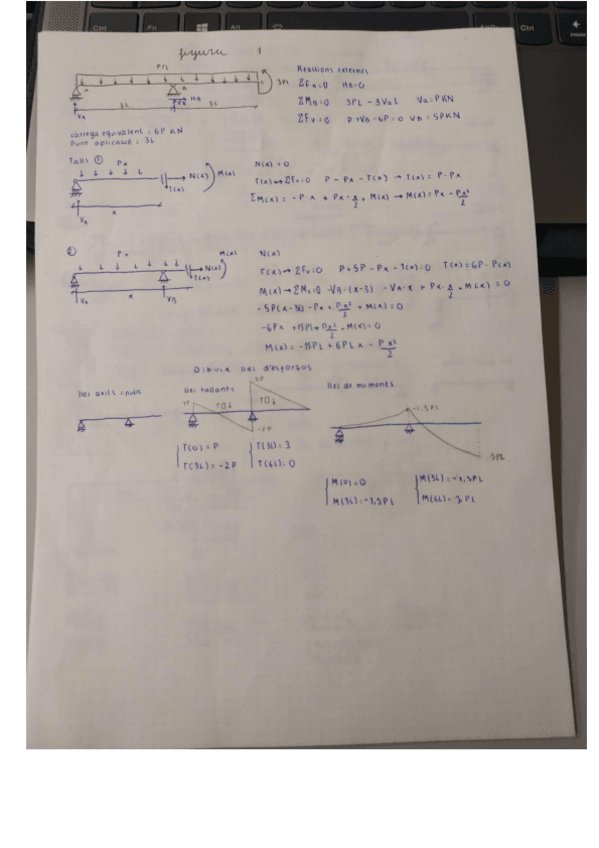 figura 1
P/L
3PL
A
B
HB
VA
VB
3L
3L
Reaccions externes
ΣFH=0 HB=0
ΣMB=0 3PL - 3VAL VA=PKN
ΣFV=0 P+VB-6P=0 VB=5PKN
càrrega equivalent = 6P KN
Punt aplicació = 3L
Talls ①
Px
N(x)
M(x)
T(x)
x
VA
N(x) = 0
T(x)→ΣFV=0 P - Px - T(x) → T(x) = P - Px
ΣM(x) = -P x + Px · x/2 + M(x) → M(x) = Px - Px²/2
②
Px
M(x)
N(x)
T(x)
VA
x
VB
N(x)
T(x)→ ΣFV=0 P+5P - Px - T(x)=0 T(x)=6P - P(x)
M(x)→ΣMx=0 -VB·(x-3) - VA·x + Px·x/2 + M(x) = 0
-5P(x-3L) - Px + Px²/2 + M(x)=0
-6Px +15PL+ Px²/2 + M(x)=0
M(x) = -15PL + 6PLx - Px²/2
Dibuix llei d'esforços
llei axils = nula
llei tallants
llei de moments
1P
3P
-2P
-1,5PL
3PL
T(0)=P
T(3L)=-2P
T(3L)=3
T(6L)=0
M(0)=0
M(3L)=-1,5PL
M(3L)=-1,5PL
M(6L)=3PL